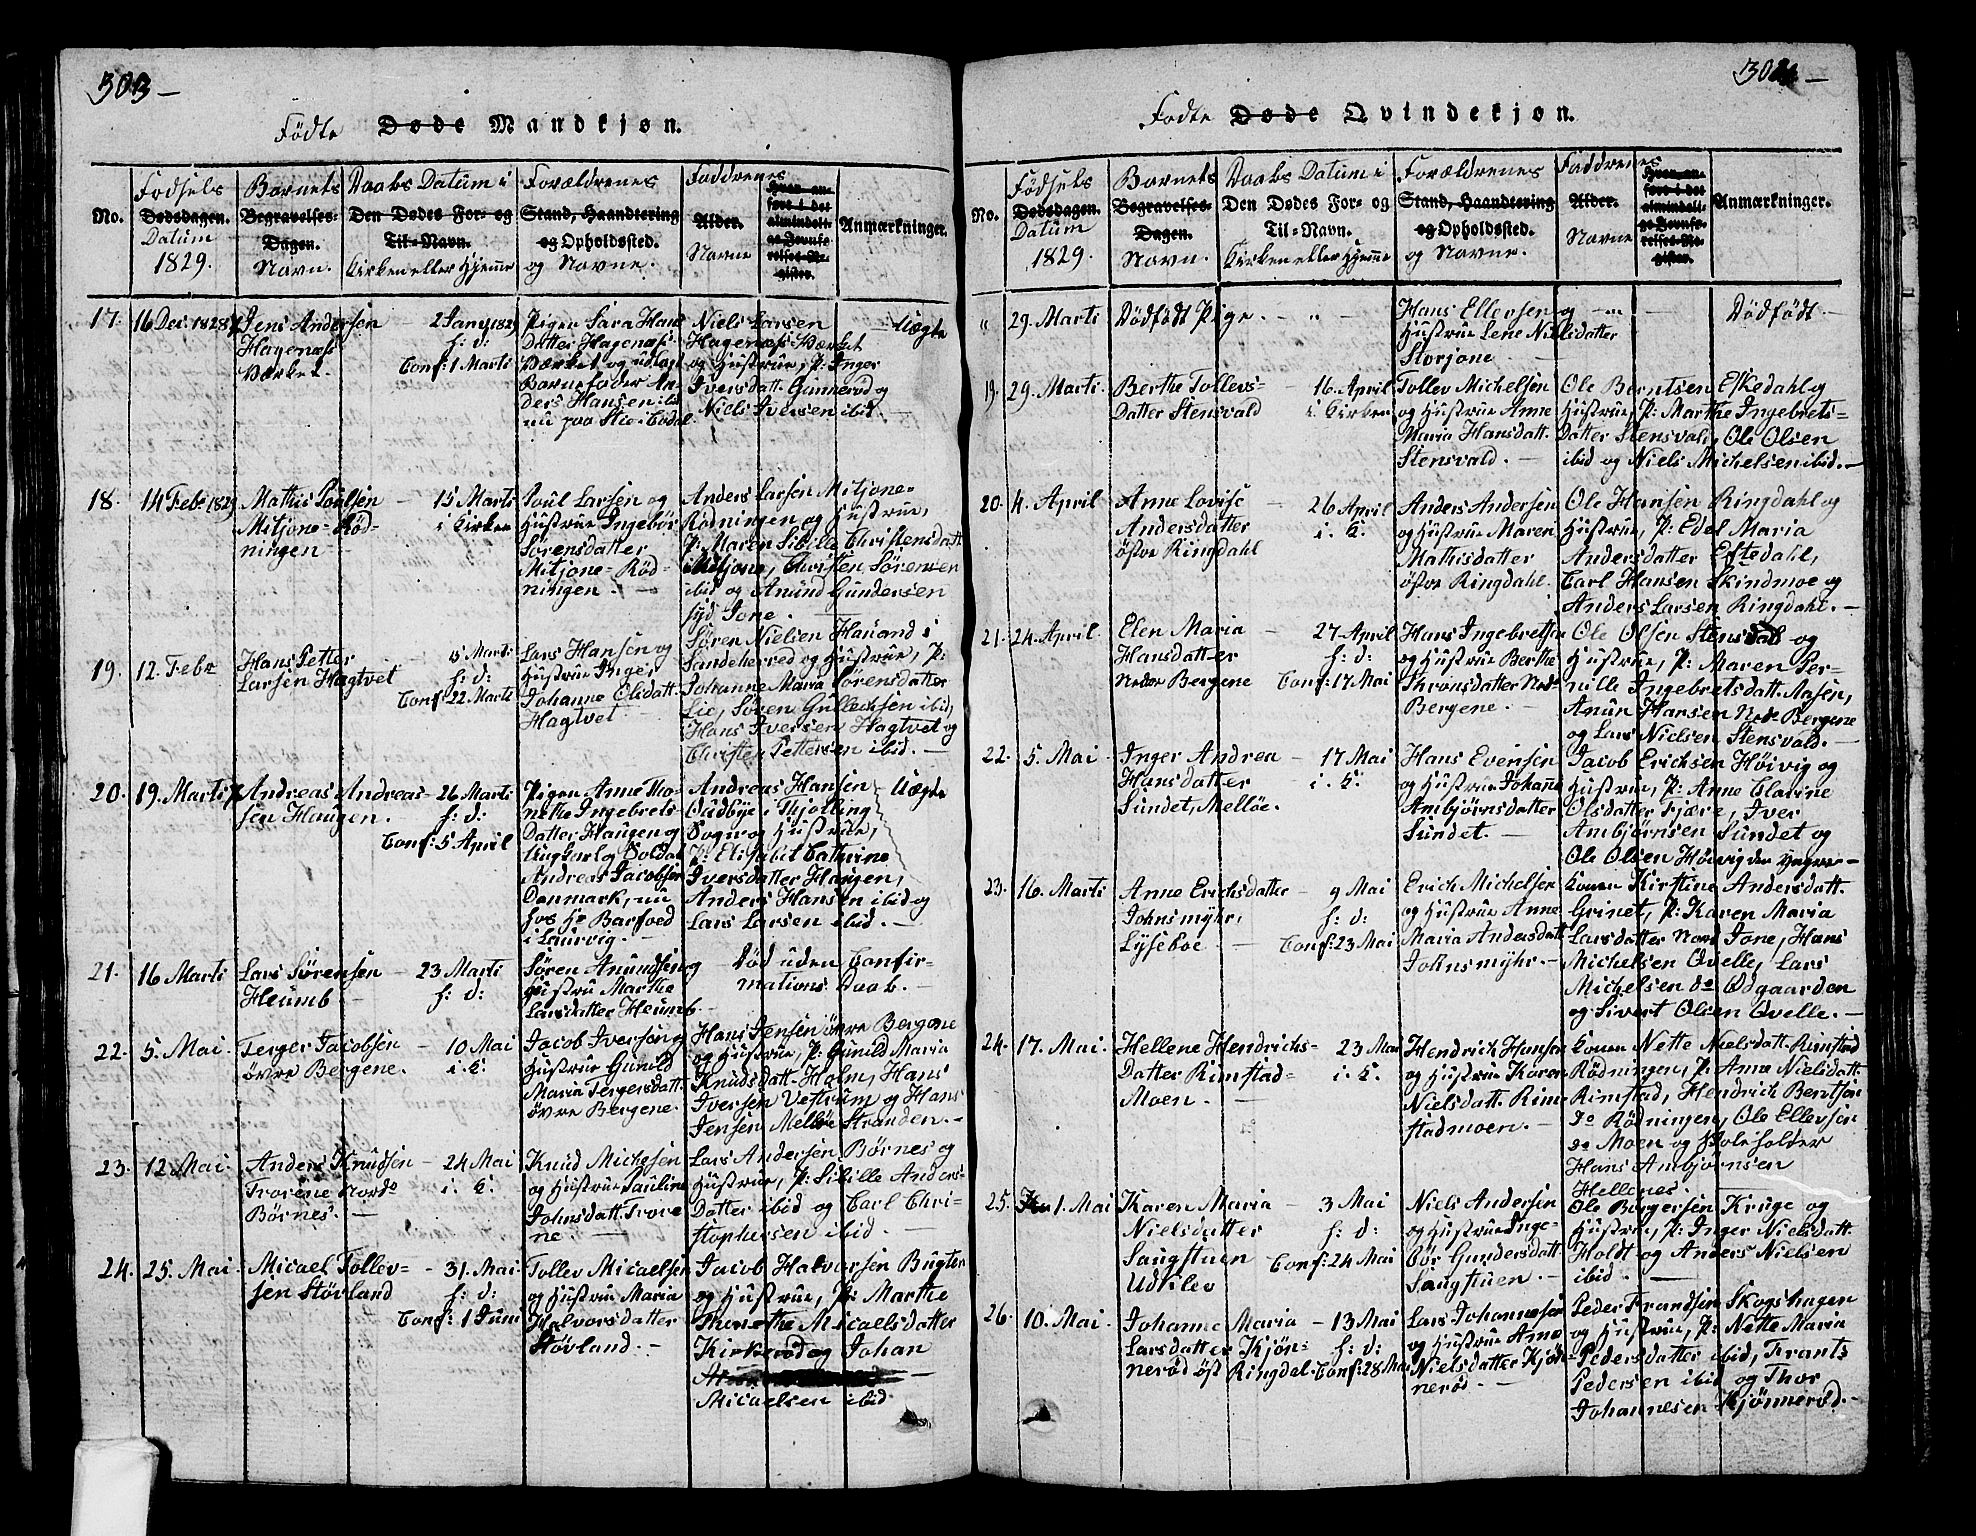 303 –
Fødte Døde Mandkjøn.
No.
Fødsels
Dødsdagen.
Datum
1829.
Barnets
Begravelses-
Dagen.
Navn.
Daabs Datum i
Den Dødes For- og
Til-Navn.
Kirken eller Hjemme
Forældrenes
Stand, Haandtering
og Opholdssted.
og Navne.
Faddrenes
Alder.
Navne
Hvor an-
ført i det
almindeli-
ge Jevnfø-
relses-Re-
gister.
Anmærkninger.
17. 16 Dec. 1828
Jens Andersen
Hagenæss
Værket.
– 2 Jany 1829
h: d:
Conf: 1 Marti
Pigen Sara Hans
Datter Hagenæs-
Værket og udlagt
Barnefader An-
ders Hansen ibd
nu paa Stie i Eodal
Niels Larsen
Hagenæss-Værket
og Hustrue, P: Inger
Iversdatt. Gunnerød og
Niels Iversen ibid. –
Uægte
18. 14 Febr 1829
Mathis Poulsen
Mitjone-Rød-
ningen –
– 15 Marti
i Kirken
Poul Larsen og
Hustrue Ingebør
Sørensdatter
Mitjone-Rød-
ningen. –
Anders Larsen Mitjone-
Rødningen og Hustrue,
P: Maren Sibille Christensdatt.
Mitjone, Christen Sørensen
ibid og Anund Gundersen
syd Jone. –
19. 12 Febr
Hans Petter
Larsen Hagtvet
15 Marti
h: d:
Conf: 22 Marti
Lars Hansen og
Hustrue Inger
Johanne Olsdatt.
Hagtvet –
Søren Nielsen Hauand i
Sandeherred og Hustrue, P:
Johanne Maria Sørensdatter
Lie, Søren Gullechsen ibid,
Hans Iversen Hagtvet og
Christen Pettersen ibid. –
20. 19. Marti
Andreas Andreas-
sen Haugen.
– 26 Marti
h: d:
Conf: 5 April
Pigen Anne Tho-
nette Ingebrets-
Datter Haugen og
Ungkarl og Soldat
Andreas Jacobsen
Danmark, nu
hos Hr Barfoed
i Laurvig. –
Andreas Hansen
Oudbye i Thjølling
Sogn og Hustrue,
P: Elisabet Cathrine
Iversdatter Haugen,
Anders Hansen ibid og
Lars Larsen ibid. –
Uægte
21. 16 Marti
Lars Sørensen
Heumb. –
– 23 Marti
h: d:
Søren Anundsen og
Hustru Marthe
Larsdatter Heumb –
Død uden Confir-
mations Daab. –
22. 5. Mai.
Terger Jacobsen
øvre Bergene. –
– 10 Mai
i. K.
Jacob Iversen og
Hustrue Gunild
Maria Tergersdatt.
øvre Bergene. –
Hans Jensen øvre Bergene
og Hustrue, P: Gunild Maria
Knudsdatt. Holm, Hans
Iversen Vestrum og Hans
Jensen Melløe Stranden. –
23. 12. Mai.
Anders Knudsen
Trorene Nordo
Børnes. –
– 24 Mai
i. K.
Knud Michelsen
og Hustrue Pauline
Johnsdatt. Trore
ne. –
Lars Andersen Børnes og
Hustrue, P: Sibille Anders-
Datter ibid og Carl Chri-
stophersen ibid. –
24. 25. Mai
Micael Tollev-
sen Støvland
– 31. Mai
h: d:
Conf: 1 Juni
Tollev Micaelsen
og Hustrue Maria
Halvorsdatter
Støvland. –
Jacob Halvorsen Bugten
og Hustrue, P: Marthe
Thonette Micaelsdatter
Kirkerød og Johan
Micaelsen ibid
304 –
Fødte Døde Qvindekjøn.
No.
Fødsels
Dødsdagen.
Datum
1829.
Barnets
Begravelses-
Dagen.
Navn.
Daabs Datum i
Den Dødes For- og
Til-Navn.
Kirken eller Hjemme
Forældrenes
Stand, Haandtering
og Opholdssted.
og Navne.
Faddrenes
Alder.
Navne
Hvor an-
ført i det
almindeli-
ge Jevnfø-
relses-Re-
gister.
Anmærkninger.
" 29. Marti
Dødfødt Pige. – " –
Hans Ellersen og
Hustrue Lene Nielsdatter
Storjone –
Dødfødt. –
19. 29. Marti.
Berthe Tollevs-
Datter Stensvald
– 16 April
i. Kirken
Tollev Michelsen
og Hustrue Anne
Maria Hansdatt.
Stensvald. –
Ole Berntsen Eskedahl og
Hustrue, P: Marthe Ingebrets-
Datter Stensvald, Ole Olsen
ibid og Niels Michelsen ibid. –
20. 4. April
– Anne Lovise
Andersdatter
østre Ringdahl
– 26 April
i. K.
Anders Andersen
og Hustrue Maren
Mathisdatter
østre Ringdahl.
Ole Hansen Ringdahl og
Hustrue, P: Edel Maria
Andersdatter Eftedahl,
Carl Hansen Skindmoe og
Anders Larsen Ringdahl. –
21. 24. April.
Elen Maria
Hansdatter
Neder Bergene
– 27 April
h: d:
Conf: 17 Mai
Hans Ingebretsen
og Hustrue Berthe
Thronsdatter Neds
Bergene. –
Ole Olsen Stensdal og
Hustrue, P: Maren Per-
nille Ingebretsdatt. Aasen,
Anun Hansen Nede Bergene
og Lars Nielsen Stensvald. –
22. 5. Mai
Inger Andrea
Hansdatter
Sundet, Melløe.
– 17 Mai
i. K.
Hans Evensen
og Hustrue Johanne
Ambjørnsdatter
Sundet. –
Jacob Erichsen Høivig og
Hustrue, P: Anne Clarine
Olsdatter Fjære, Iver
Ambjørnsen Sundet og
Ole Olsen Høivig den yngre –
23. 16. Marti
Anne Erichsdatter
Johnsmyhr,
Lyseboe –
– 9 Mai
h: d:
Conf: 23 Mai
Erich Michelsen
og Hustrue Anne
Maria Andersdatt.
Johnsmyhr. –
Konen Kirstine Andersdatt.
Grinet, P: Karen Maria
Larsdatter Nord Jone, Hans
Michelsen Qvelle, Lars
Michelsen do Odgaarden
og Sivert Olsen Qvelle. –
24. 17. Mai.
Hellene Hendrichs-
Datter Rimstad-
Moen. –
– 23 Mai
i. K.
Hendrich Hansen
og Hustrue Karen
Nielsdatt. Rim-
stadmoen. –
Konen Nette Nielsdatt. Rimstad
Rødningen, P: Anne Nielsdatt.
Rimstad, Hendrich Bentsen
do Rødningen, Ole Ellevsen
do Moen og Poleholder
Hans Ambjørnsen
Hellenes. –
25. 1. Mai
Karen Maria
Nielsdatter
Saugstuen
Udklev
– 3 Mai
h: d:
Conf: 24 Mai
Niels Andersen
og Hustrue Inge-
bør Gundersdatt.
Saugstuen. –
Ole Børgersen Kruge og
Hustrue, P: Inger Nielsdatt.
Holdt og Anders Nielsen
ibid. –
26. 10. Mai.
Johanne Maria
Larsdatter Kjøn-
nerød øst Ringdal.
– 13 Mai
h: d:
Conf: 28 Mai
Lars Johannesen
og Hustrue Anne
Nielsdatter Kjøn-
nerød. –
Peder Frandsen Skogshagen
og Hustrue, P: Nette Maria
Pedersdatter ibid, Frants
Pedersen ibid og Thor
Johannesen Kjønnerød. –